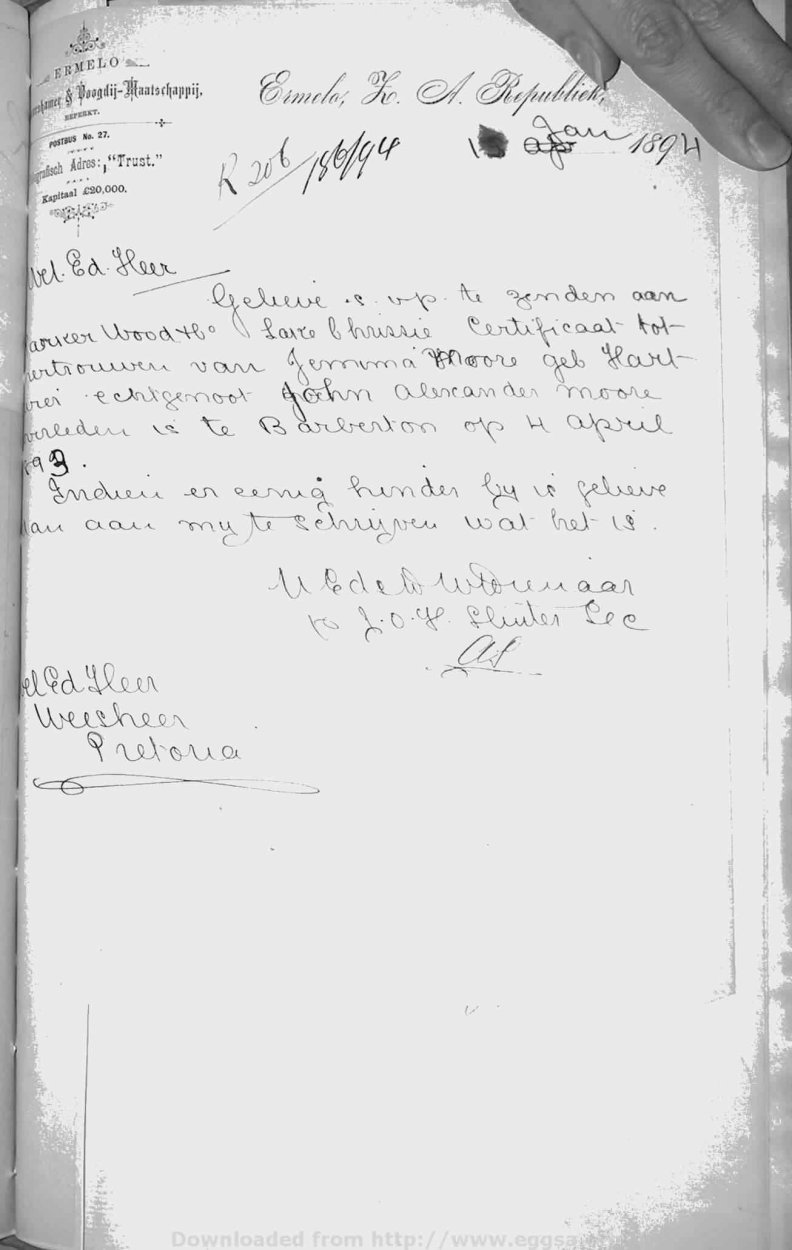 ERMELO
& Voogdij-Maatschappij,
BEPERKT.
POSTBUS No. 27.
Adres: "Trust."
Kapitaal £20,000.
Ermelo, Z. A. Republiek,
Jan 1894
R 206/94
Ed. Heer
Gelieve s. v. p. te zenden aan
Wood & Co Lake Chrissie Certificaat tot
van Jemima Moore geb Hart
echtgenoot John Alexander Moore
is te Barberton op 4 April
93.
Indien er eenig hinder by is gelieve
aan my te schrijven wat het is.
U Ed d W Dienaar
J. O. H. Sec
Ed Heer
Weesheer
Pretoria
Downloaded from http://www.eggsa.